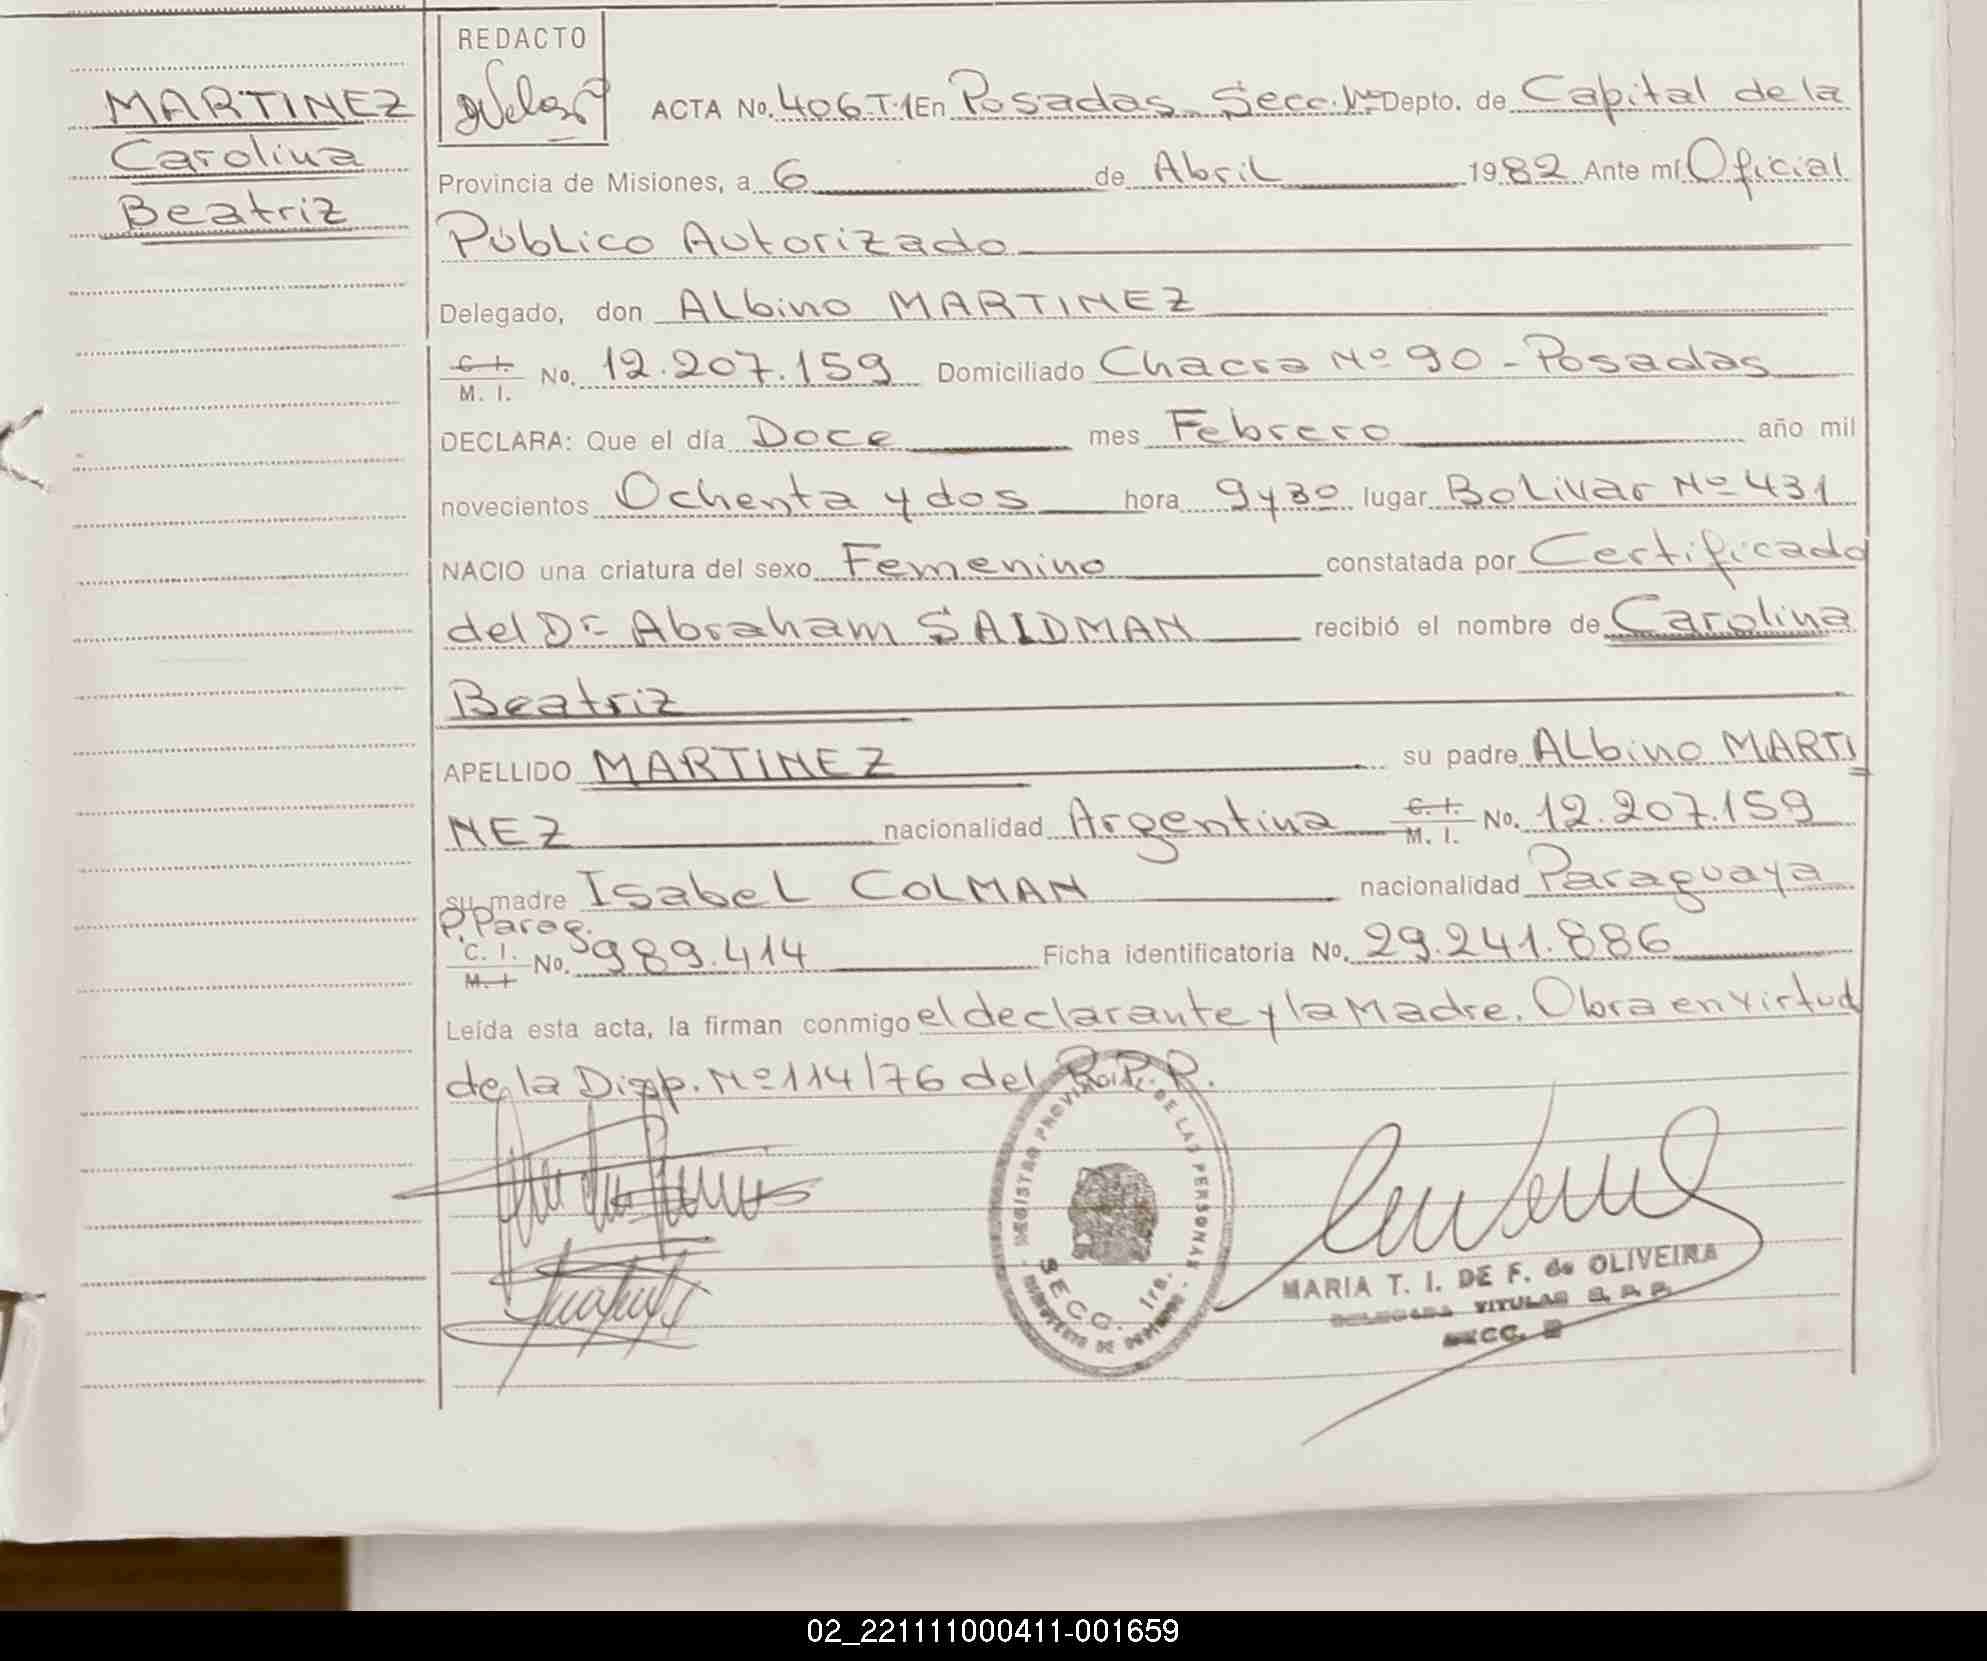 MARTINEZ
Carolina
Beatriz
REDACTO
ACTA No. 406 T.1 En Posadas Secc. 1ra Depto. de Capital de la
Provincia de Misiones, a 6 de Abril 1982 Ante mí Oficial
Público Autorizado
Delegado, don Albino MARTINEZ
C. I.
M. I. No. 12.207.159 Domiciliado Chacra Nº 90 - Posadas
DECLARA: Que el día Doce mes Febrero año mil
novecientos Ochenta y dos hora 9 y 30 lugar Bolivar Nº 431
NACIO una criatura del sexo Femenino constatada por Certificado
del Dr. Abraham SAIDMAN recibió el nombre de Carolina
Beatriz
APELLIDO MARTINEZ su padre Albino MARTI
NEZ nacionalidad Argentina C. I. M. I. No. 12.207.159
su madre Isabel COLMAN nacionalidad Paraguaya
P. Parag.
C. I. M. I. No. 989.414 Ficha identificatoria No. 29.241.886
Leída esta acta, la firman conmigo el declarante y la Madre. Obra en virtud
de la Disp. Nº 114/76 del R.P.P.
REGISTRO PROVINCIAL DE LAS PERSONAS
SECC. 1ra.
MARIA T. I. DE F. de OLIVEIRA
DELEGADA TITULAR R. P. P.
SECC.
02_221111000411-001659